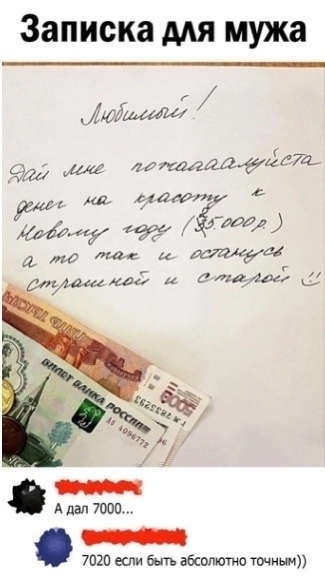 Записка для мужа
Любимый!
Дай мне пожаааалуйста
денег на красоту к
Новому году (35.000р.)
а то так и останусь
страшной и старой
БИЛЕТ БАНКА РОССИИ
5000
Аь 4096772
А дал 7000...
7020 если быть абсолютно точным))